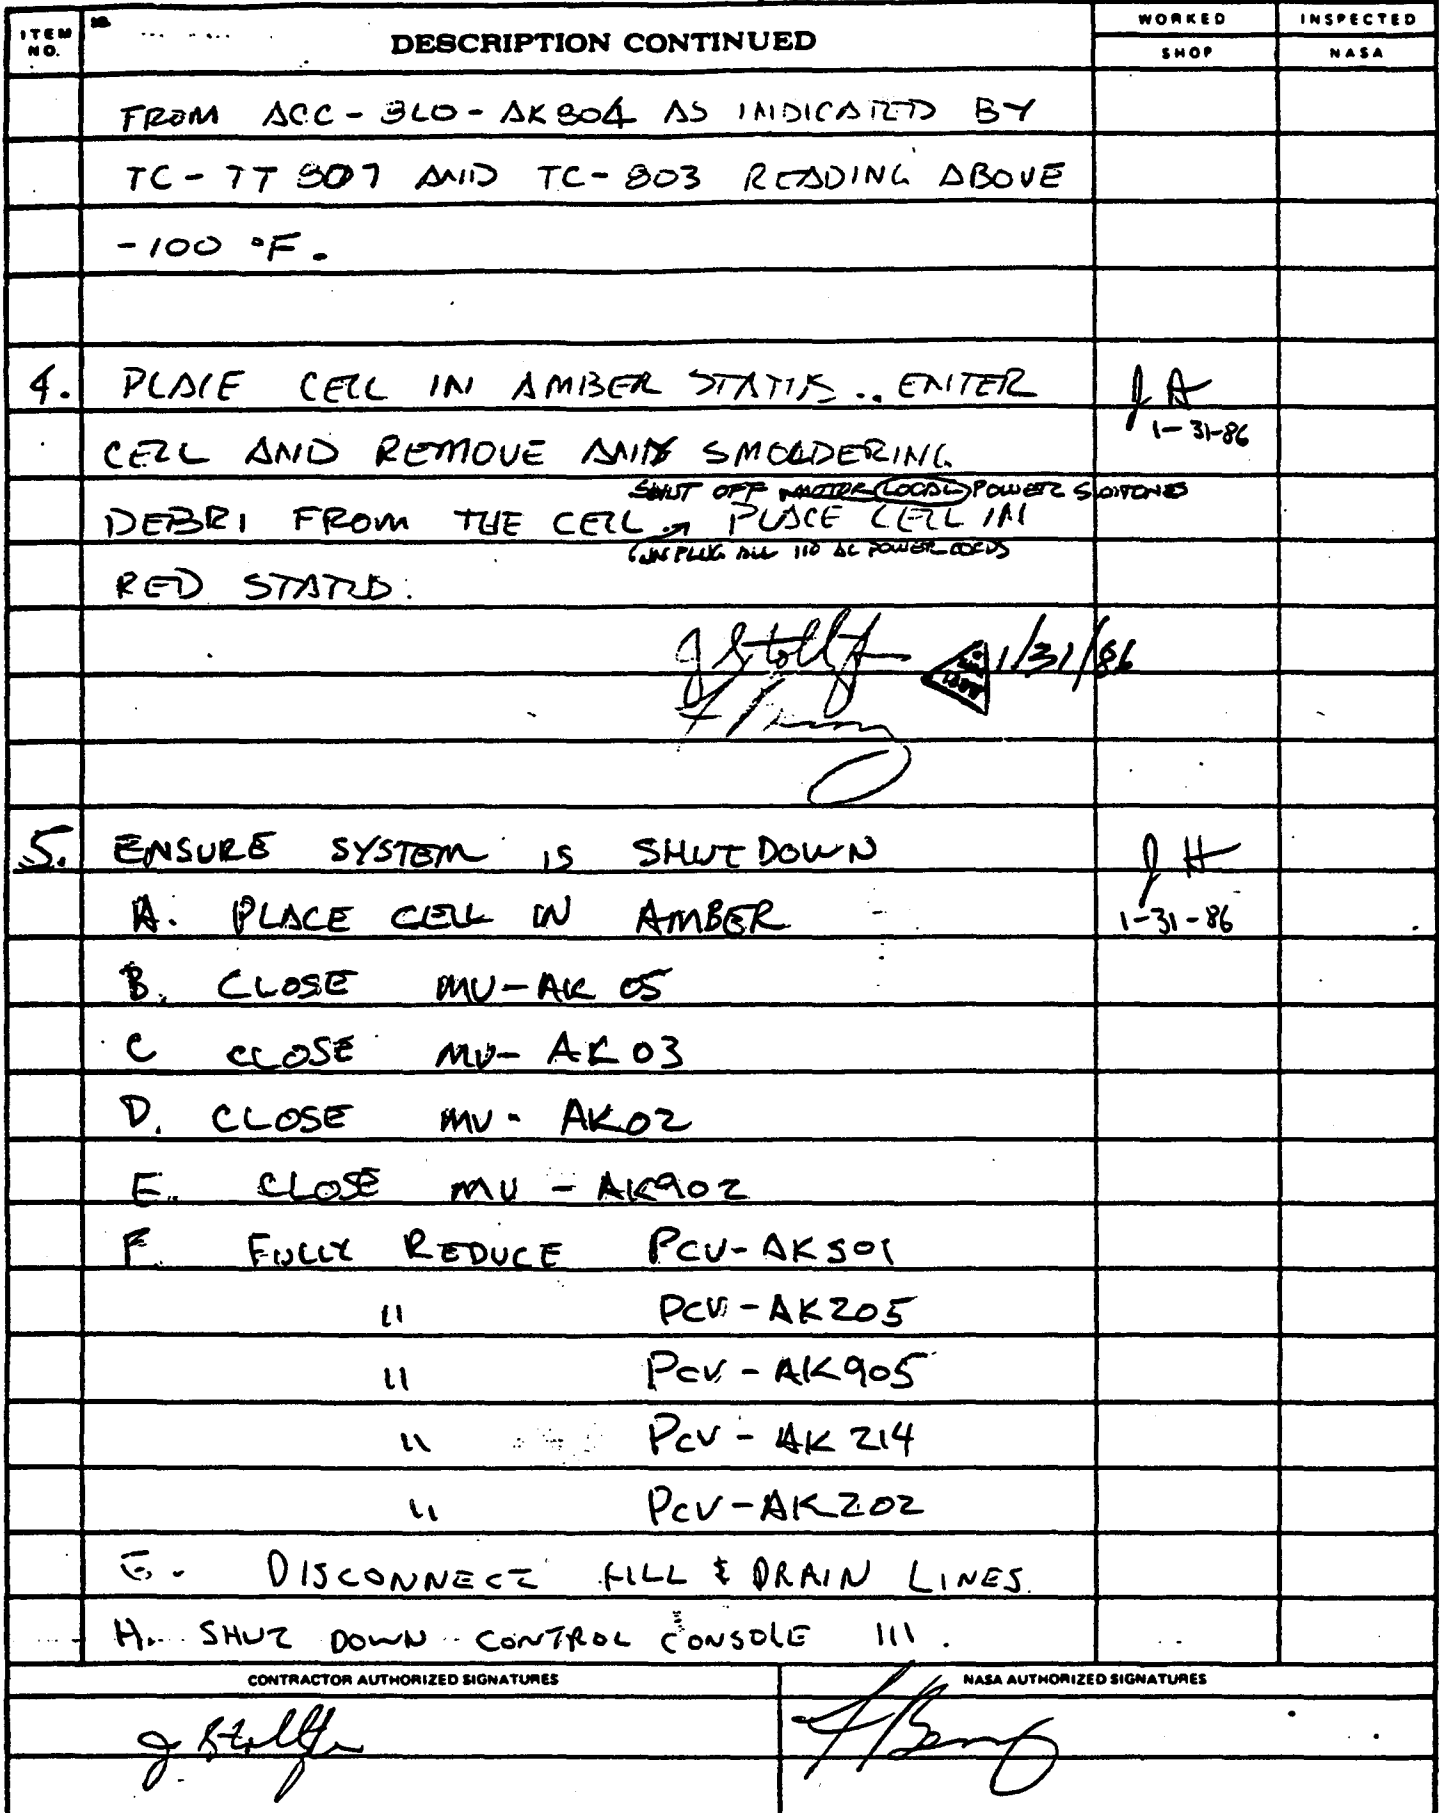 ITEM NO.
DESCRIPTION CONTINUED
WORKED
SHOP
INSPECTED
NASA
FROM ACC-3LO-AK804 AS INDICATED BY
TC-TT 807 AND TC-803 READING ABOVE
-100 °F.
4. PLACE CELL IN AMBER STATUS.. ENTER
1-31-86
CELL AND REMOVE ANY SMOLDERING
SHUT OFF MOTOR (LOCAL) POWER SWITCHES
DEBRI FROM THE CELL. PLACE CELL IN
UNPLUG ALL 110 AC POWER CORDS
RED STATUS.
J Stollf
1/31/86
5. ENSURE SYSTEM IS SHUT DOWN
J H
A. PLACE CELL IN AMBER
1-31-86
B. CLOSE MV-AK 05
C CLOSE MV-AK03
D. CLOSE MV-AK02
E. CLOSE MV-AK902
F. FULLY REDUCE PCV-AK501
" PCV-AK205
" PCV-AK905
" PCV-AK 214
" PCV-AK202
G. DISCONNECT FILL & DRAIN LINES.
H. SHUT DOWN CONTROL CONSOLE 111.
CONTRACTOR AUTHORIZED SIGNATURES
NASA AUTHORIZED SIGNATURES